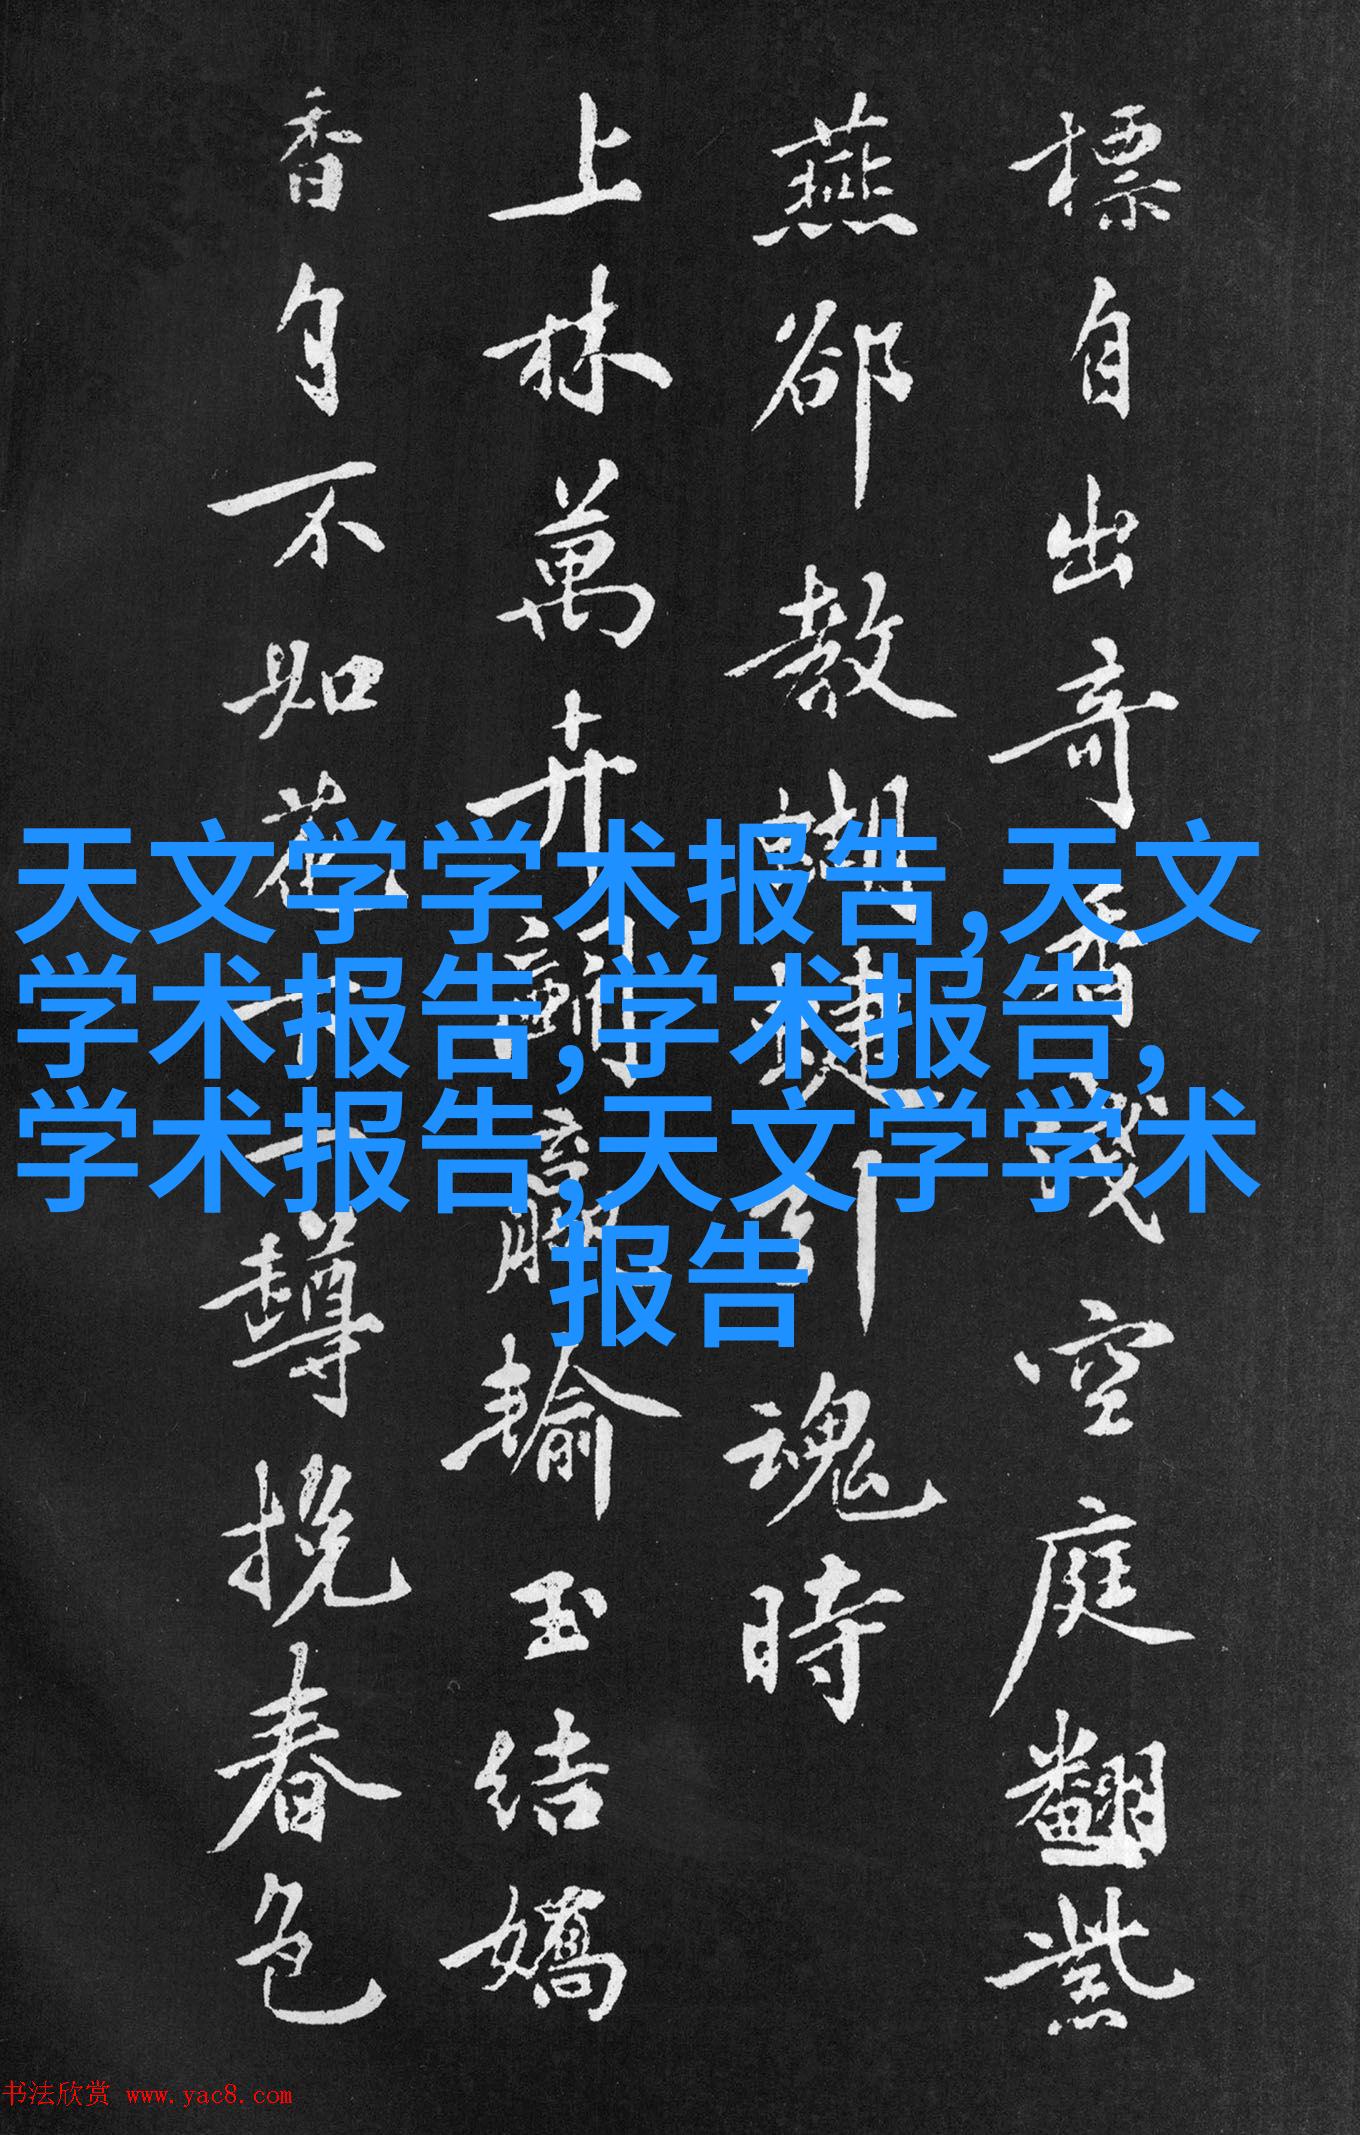 標自出奇香議空庭翻紫
燕郤教蝴蝶引魂時
上林萬卉闘嬴輸玉结嬌
香自不如花下一蹲挽春色
天文学学术报告,天文
学术报告,学术报告,
学术报告,天文学学术
报告
书法欣赏 www.yac8.com